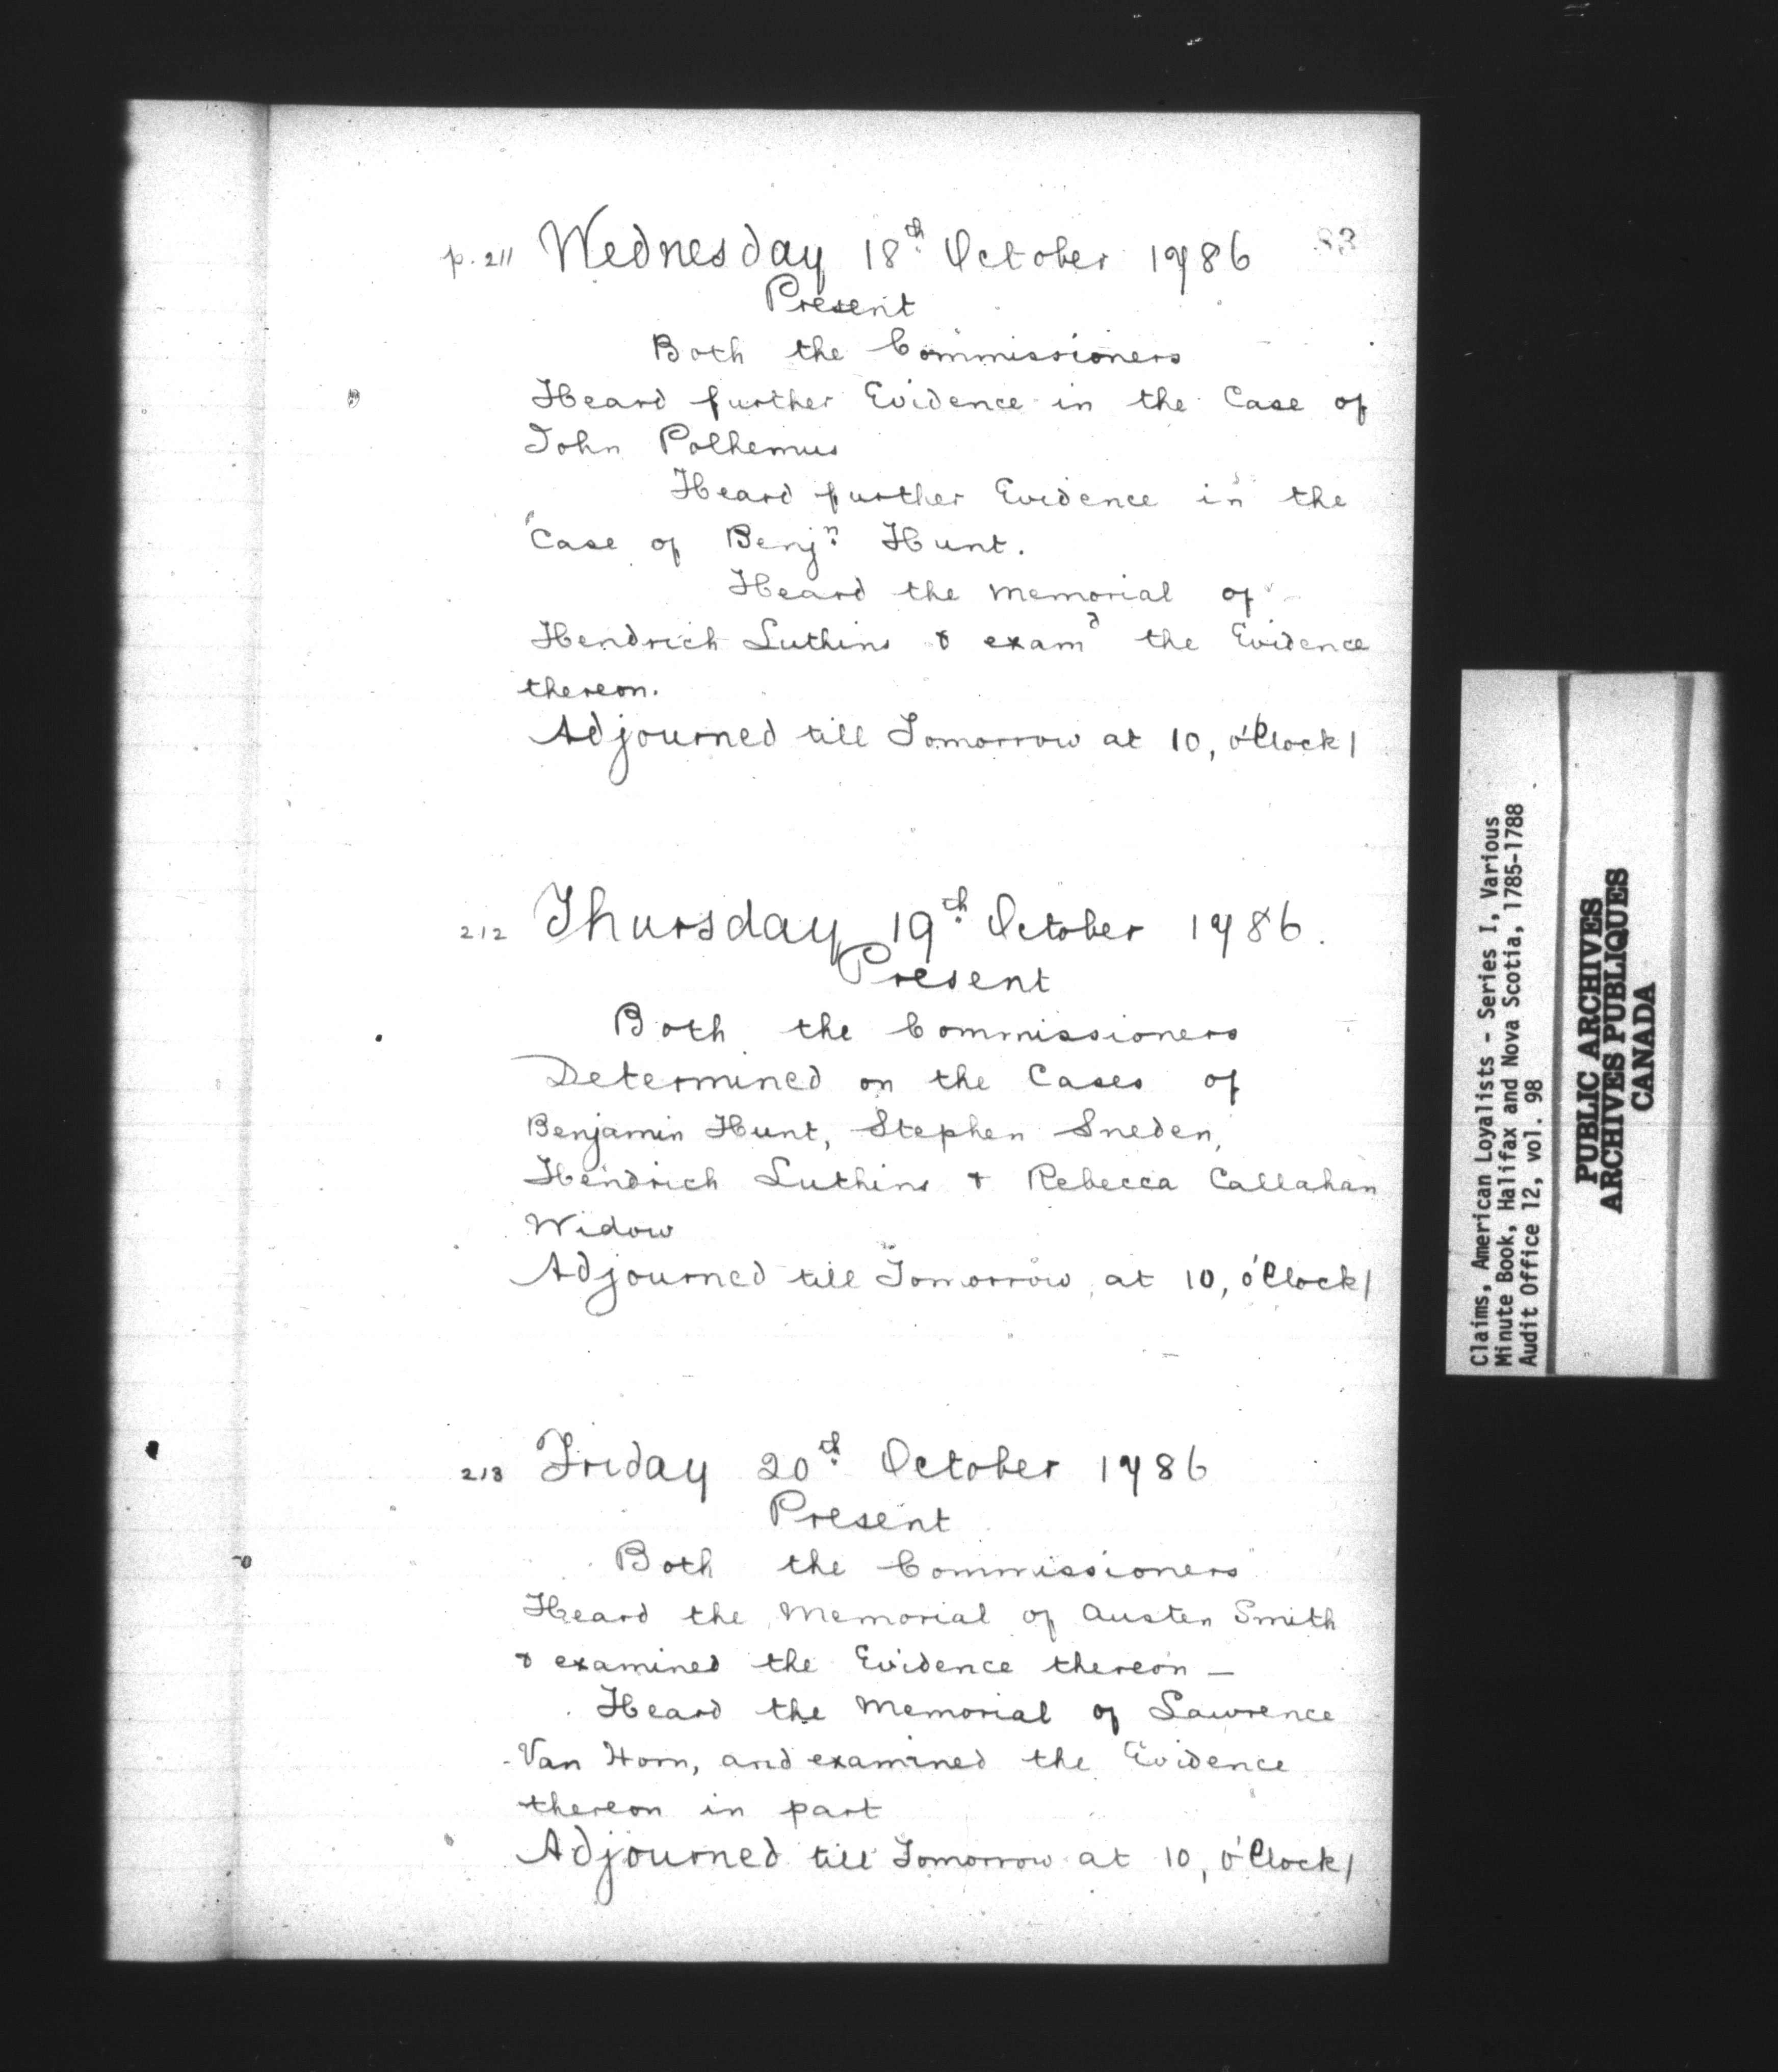 83
p. 211 Wednesday 18th October 1786
Present
Both the Commissioners
Heard further Evidence in the Case of
John Polhemus
Heard further Evidence in the
Case of Benjn Hunt.
Heard the Memorial of
Hendrich Luthins & examd the Evidence
thereon.
Adjourned till Tomorrow at 10, o'Clock/
212 Thursday 19th October 1786.
Present
Both the Commissioners
Determined on the Cases of
Benjamin Hunt, Stephen Sneden,
Hendrich Luthins & Rebecca Callahan
Widow
Adjourned till Tomorrow at 10, o'Clock/
213 Friday 20th October 1786
Present
Both the Commissioners
Heard the Memorial of Austen Smith
& examined the Evidence thereon —
Heard the Memorial of Lawrence
Van Horn, and examined the Evidence
thereon in part
Adjourned till Tomorrow at 10, o'Clock/
Claims, American Loyalists - Series I, Various
Minute Book, Halifax and Nova Scotia, 1785-1788
Audit Office 12, vol. 98
PUBLIC ARCHIVES
ARCHIVES PUBLIQUES
CANADA